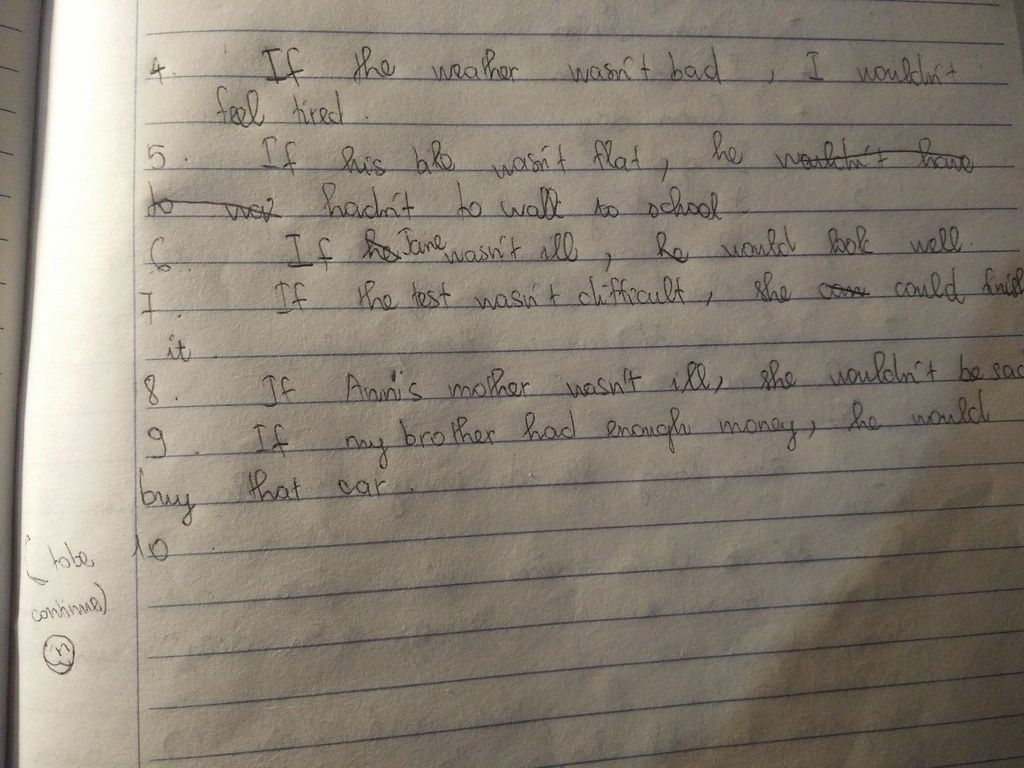 4. If the weather wasn't bad, I wouldn't
feel tired.
5. If his bike wasn't flat, he wouldn't have
to hadn't to walk to school
6. If he Jane wasn't ill, he would look well.
7. If the test wasn't difficult, she can could finish
it
8. If Anni's mother wasn't ill, she wouldn't be sad
9. If my brother had enough money, he would
buy that car.
10.
(to be
continue)